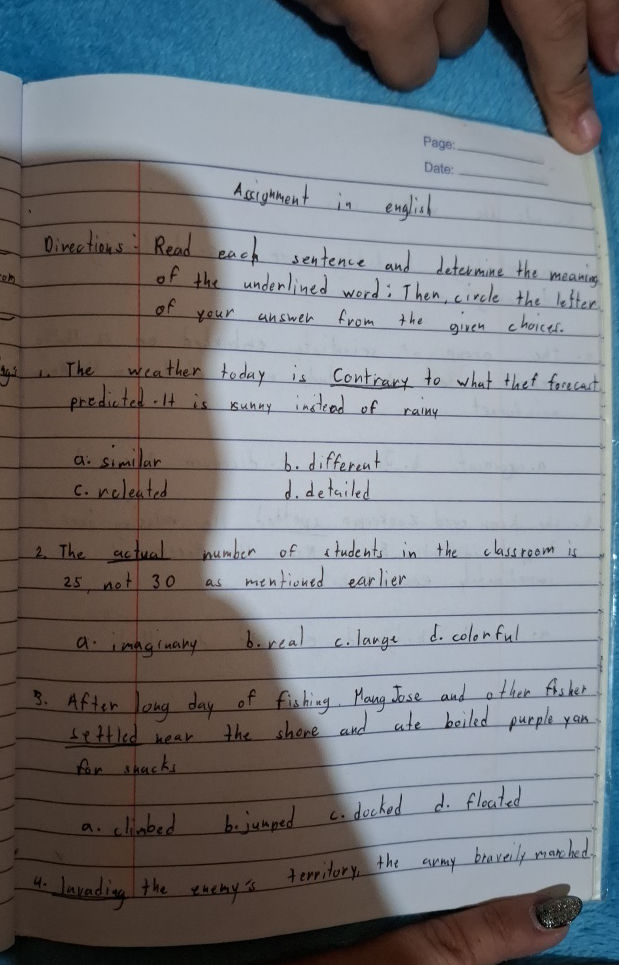 Page:
Date:
Assignment in english
Directions: Read each sentence and determine the meaning
of the underlined word: Then, circle the letter
of your answer from the given choices.
1. The weather today is Contrary to what thet forecast
predicted. It is sunny instead of rainy
a. similar b. different
c. releated d. detailed
2. The actual number of students in the classroom is
25, not 30 as mentioned earlier
a. imaginary b. real c. large d. colorful
3. After long day of fishing, Mang Jose and other fisher
settled near the shore and ate boiled purple yam
for snacks
a. climbed b. jumped c. docked d. floated
4. Invading the enemy's territory, the army braveily marched